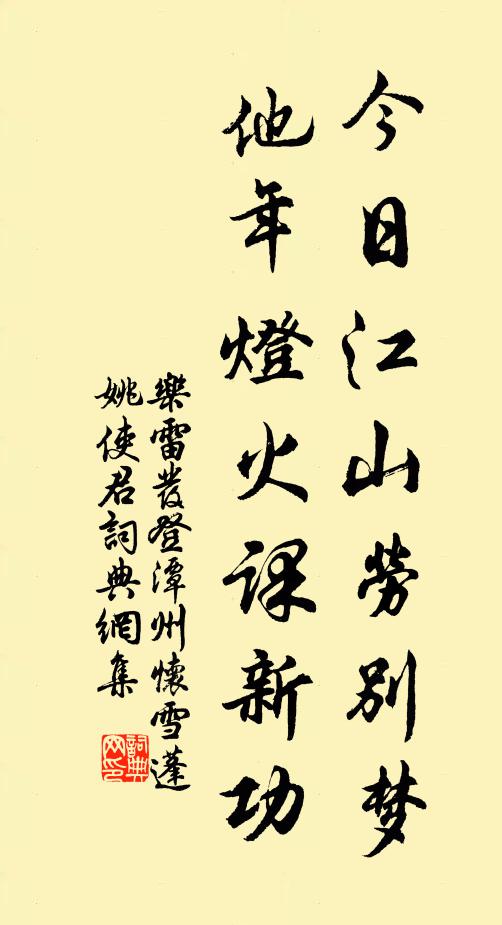 今日江山劳别梦
他年燈火课新功
樂雷發登潭州懷雪蓬
姚使君詞典網集
詞典
网印